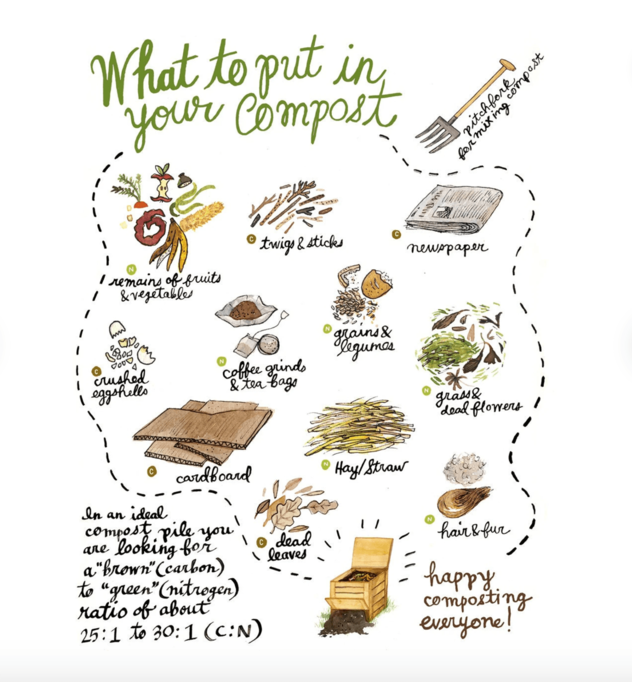 What to put in
your Compost
pitchfork
for mixing compost
N
remains of fruits
& vegetables
C
twigs & sticks
C
newspaper
C
crushed
eggshells
N
coffee grinds
& tea bags
N
grains &
legumes
N
grass &
dead flowers
C
cardboard
N
Hay/Straw
N
hair & fur
C
dead
leaves
In an ideal
compost pile you
are looking for
a "brown" (carbon)
to "green" (nitrogen)
ratio of about
25:1 to 30:1 (C:N)
happy
composting
everyone!